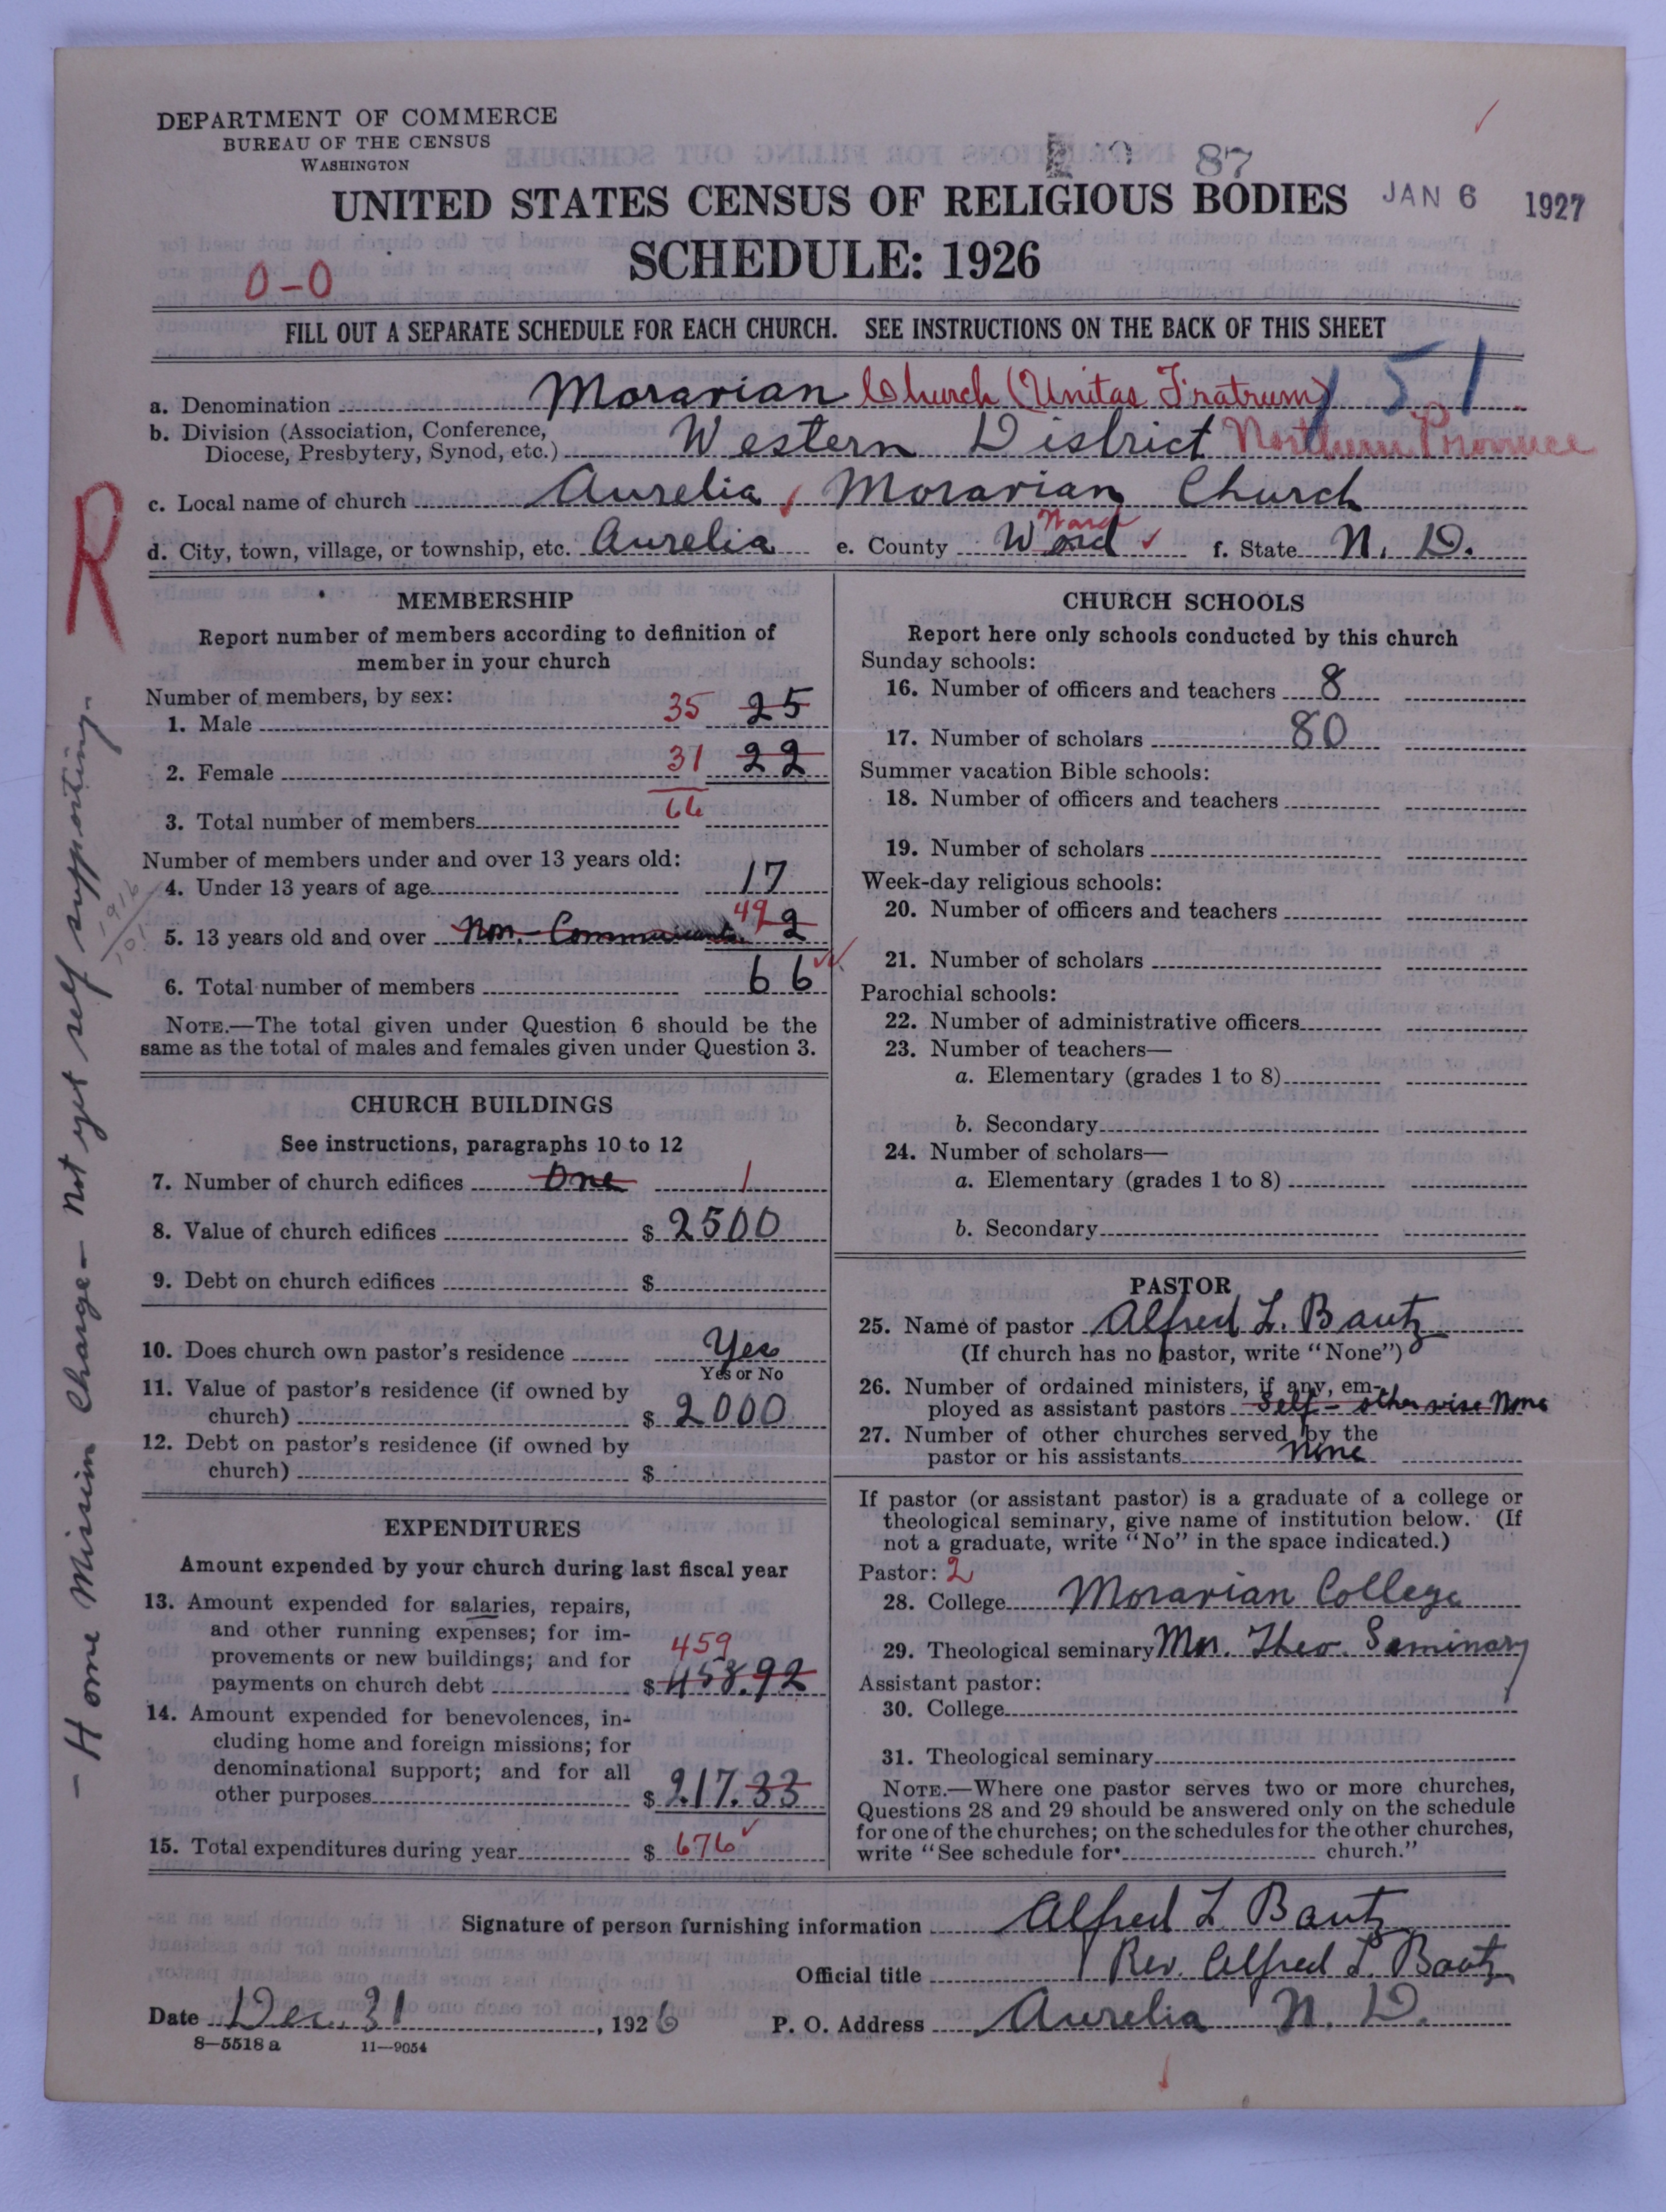 DEPARTMENT OF COMMERCE
BUREAU OF THE CENSUS
WASHINGTON
87
UNITED STATES CENSUS OF RELIGIOUS BODIES JAN 6 1927
SCHEDULE: 1926
0-0
FILL OUT A SEPARATE SCHEDULE FOR EACH CHURCH. SEE INSTRUCTIONS ON THE BACK OF THIS SHEET
151
a. Denomination Moravian Church (Unitas Fratrum)
b. Division (Association, Conference,
Diocese, Presbytery, Synod, etc.) Western District Northern Province
c. Local name of church Aurelia Moravian Church
d. City, town, village, or township, etc. Aurelia e. County Word Ward f. State N. D.
R
- Home Mission Charge - Not yet self supporting.
MEMBERSHIP
Report number of members according to definition of
member in your church
Number of members, by sex:
1. Male 35 25
2. Female 31 22
3. Total number of members 66
Number of members under and over 13 years old:
4. Under 13 years of age 17
5. 13 years old and over Non-Communicants 49 2
6. Total number of members 66
NOTE.—The total given under Question 6 should be the
same as the total of males and females given under Question 3.
CHURCH BUILDINGS
See instructions, paragraphs 10 to 12
7. Number of church edifices One 1
8. Value of church edifices $ 2500
9. Debt on church edifices $
10. Does church own pastor's residence Yes
Yes or No
11. Value of pastor's residence (if owned by
church) $ 2000
12. Debt on pastor's residence (if owned by
church) $
EXPENDITURES
Amount expended by your church during last fiscal year
13. Amount expended for salaries, repairs,
and other running expenses; for im-
provements or new buildings; and for 459
payments on church debt $ 458.92
14. Amount expended for benevolences, in-
cluding home and foreign missions; for
denominational support; and for all
other purposes $ 217.33
15. Total expenditures during year $ 676
CHURCH SCHOOLS
Report here only schools conducted by this church
Sunday schools:
16. Number of officers and teachers 8
17. Number of scholars 80
Summer vacation Bible schools:
18. Number of officers and teachers
19. Number of scholars
Week-day religious schools:
20. Number of officers and teachers
21. Number of scholars
Parochial schools:
22. Number of administrative officers
23. Number of teachers—
a. Elementary (grades 1 to 8)
b. Secondary
24. Number of scholars—
a. Elementary (grades 1 to 8)
b. Secondary
PASTOR
25. Name of pastor Alfred L. Bautz
(If church has no pastor, write "None")
26. Number of ordained ministers, if any, em-
ployed as assistant pastors Self - otherwise None
27. Number of other churches served by the
pastor or his assistants None
If pastor (or assistant pastor) is a graduate of a college or
theological seminary, give name of institution below. (If
not a graduate, write "No" in the space indicated.)
Pastor: 2
28. College Moravian College
29. Theological seminary Mor. Theo. Seminary
Assistant pastor:
30. College
31. Theological seminary
NOTE.—Where one pastor serves two or more churches,
Questions 28 and 29 should be answered only on the schedule
for one of the churches; on the schedules for the other churches,
write "See schedule for church."
Signature of person furnishing information Alfred L. Bautz
Official title Rev. Alfred L. Bautz
Date Dec. 31, 1926 P. O. Address Aurelia N. D.
8—5518 a 11—9054